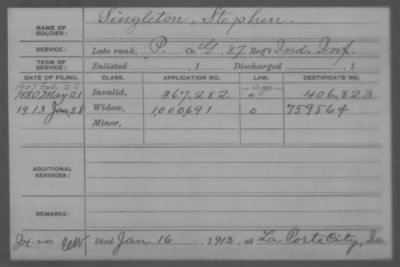 NAME OF SOLDIER: Singleton, Stephen.
SERVICE: Late rank, P. Co. G, 87 Reg't Ind. Inf.
TERM OF SERVICE: Enlisted , 1 Discharged , 1
DATE OF FILING. CLASS. APPLICATION NO. LAW. CERTIFICATE NO.
1907 Feb 23 age
1880 May 21 Invalid, 367.282 o 406.823
1913 Jan 28 Widow, 1000691 o 759564
Minor,
ADDITIONAL SERVICES:
REMARKS:
Died Jan 16 1913, at La Porte City, Ia